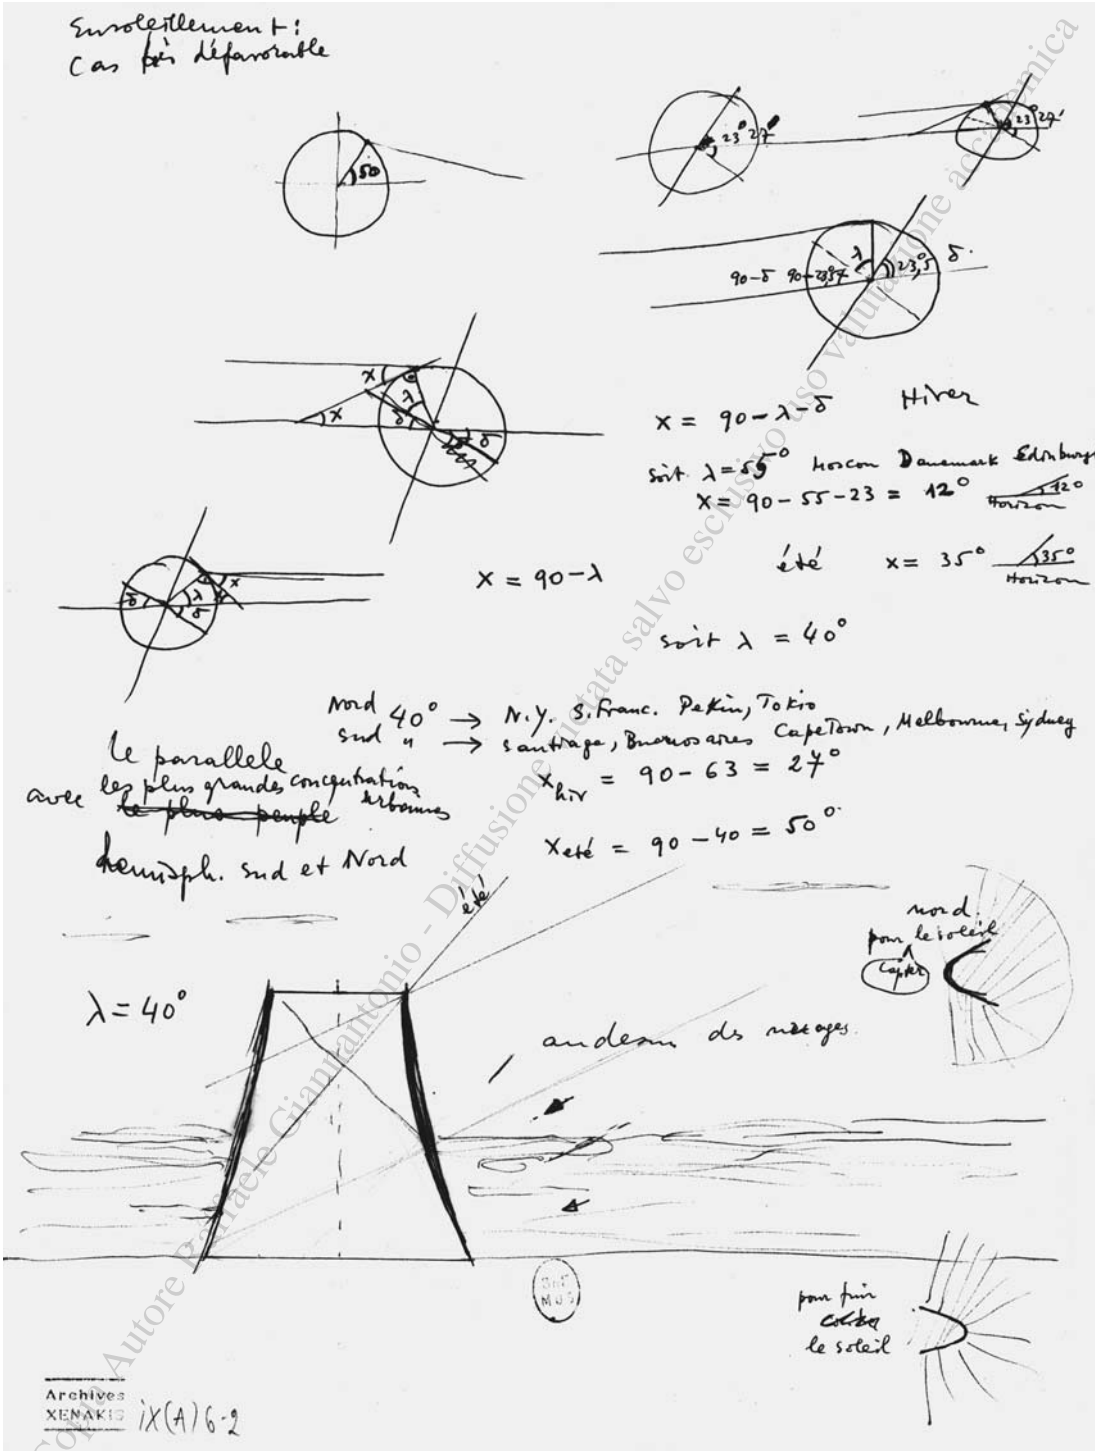 Ensoleillement :
Cas très défavorable
50
23° 27'
23° 27'
λ
23°,5 δ.
90-δ 90-
x
λ
x
δ
δ
x = 90-λ-δ Hiver
soit λ = 55° Moscou Danemark Edinburg
x = 90-55-23 = 12° 12°
Horizon
été x = 35° 35°
Horizon
x = 90-λ
δ λ x
δ
soit λ = 40°
Nord 40° → N.Y. S.Franc. Pekin, Tokio
sud " → santiago, Buenos aires CapeTown, Melbourne, Sydney
le parallele
avec les plus grandes concentrations
le plus peuplé urbaines
hemisph. sud et Nord
x hiv = 90-63 = 27°
x eté = 90-40 = 50°
été
nord
pour le soleil
capter
λ = 40°
au dessus des nuages.
pour fuir
le soleil
BnF
MUS
Archives
XENAKIS
iX(A)6-2
Copia Autore Raffaele Giannantonio - Diffusione vietata salvo esclusivo uso valutazione accademica